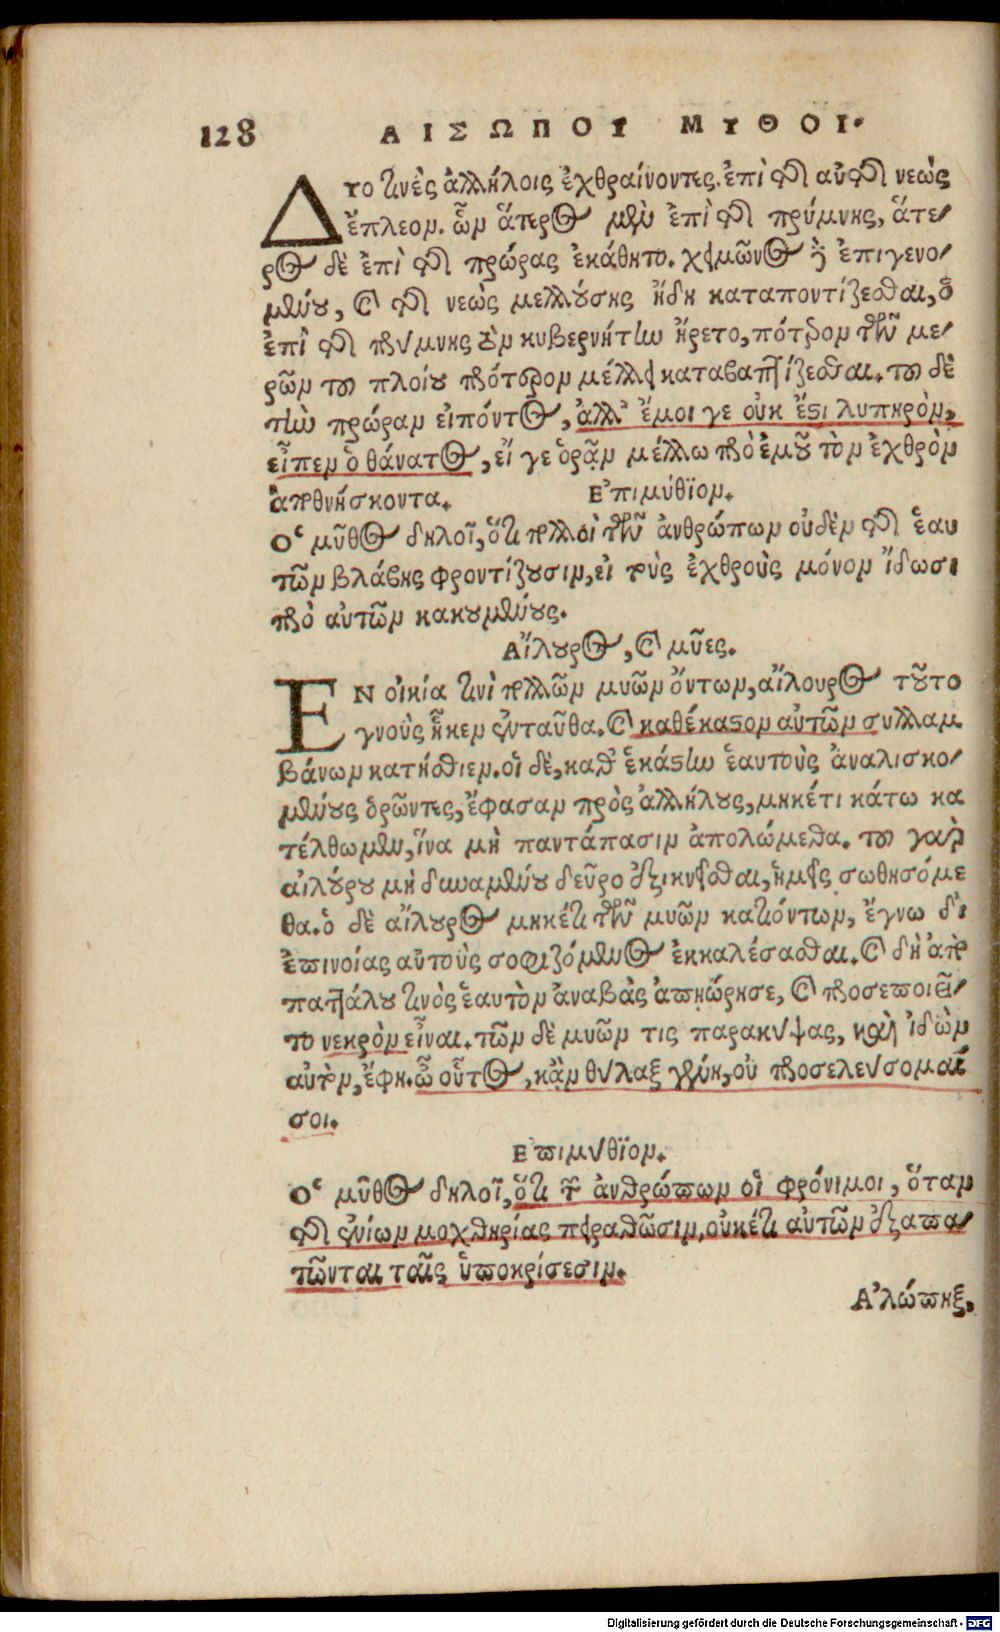 128 ΑΙΣΩΠΟΥ ΜΥΘΟΙ.
ΔΥο τινὲς ἀλλήλοις ἐχθραίνοντες. ἐπὶ τῆς αὐτῆς νεὼς
ἔπλεον. ὧν ἅτερος μὲν ἐπὶ τῆς πρύμνης, ἅτε-
ρος δὲ ἐπὶ τῆς πρώρας ἐκάθητο. χειμῶνος δὲ ἐπιγενο-
μένου, καὶ τῆς νεὼς μελλούσης ἤδη καταποντίζεσθαι, ὁ
ἐπὶ τῆς πρύμνης τὸν κυβερνήτην ἤρετο, πότερον τῶν με-
ρῶν τοῦ πλοίου πρότερον μέλλει καταβαπτίζεσθαι. τοῦ δὲ
τὴν πρώραν εἰπόντος, ἀλλ' ἔμοι γε οὐκ ἔστι λυπηρὸν,
εἶπερ ὁ θάνατος, εἴ γε ὁρᾷν μέλλω πρὸ ἐμοῦ τὸν ἐχθρὸν
ἀποθνήσκοντα. Ἐπιμύθϊον.
Ὁ μῦθος δηλοῖ, ὅτι πολλοὶ τῶν ἀνθρώπων οὐδὲν τῆς ἑαυ
τῶν βλάβης φροντίζουσιν, εἰ τοὺς ἐχθροὺς μόνον ἴδωσι
πρὸ αὐτῶν κακουμένους.
Αἴλουρος, καὶ μῦες.
ΕΝ οἰκία τινὶ πολλῶν μυῶν ὄντων, αἴλουρος τοῦτο
γνοὺς ἧκεν ἐνταῦθα. καὶ καθέκαστον αὐτῶν συλλαμ
βάνων κατήσθιεν. οἱ δὲ, καθ' ἑκάστην ἑαυτοὺς ἀναλισκο-
μένους ὁρῶντες, ἔφασαν πρὸς ἀλλήλους, μηκέτι κάτω κα
τέλθωμεν, ἵνα μὴ παντάπασιν ἀπολώμεθα. τοῦ γὰρ
αἰλούρου μὴ δυναμένου δεῦρο ἐξικνεῖσθαι, ἡμεῖς σωθησόμε
θα. ὁ δὲ αἴλουρος μηκέτι τῶν μυῶν κατιόντων, ἔγνω δι'
ἐπινοίας αὐτοὺς σοφιζόμενος ἐκκαλέσασθαι. καὶ δὴ ἀπὸ
παττάλου τινὸς ἑαυτὸν ἀναβὰς ἀπῃώρησε, καὶ προσεποιεῖ-
το νεκρὸν εἶναι. τῶν δὲ μυῶν τις παρακύψας, καὶ ἰδὼν
αὐτὸν, ἔφη. ὦ οὗτος, κᾂν θύλαξ γένῃ, οὐ προσελεύσομαί
σοι.
Ἐπιμύθϊον.
Ὁ μῦθος δηλοῖ, ὅτι τῶν ἀνθρώπων οἱ φρόνιμοι, ὅταν
τῆς ἐνίων μοχθηρίας πειραθῶσιν, οὐκέτι αὐτῶν ἐξαπα-
τῶνται ταῖς ὑποκρίσεσιν.
Ἀλώπηξ,
Digitalisierung gefördert durch die Deutsche Forschungsgemeinschaft - DFG